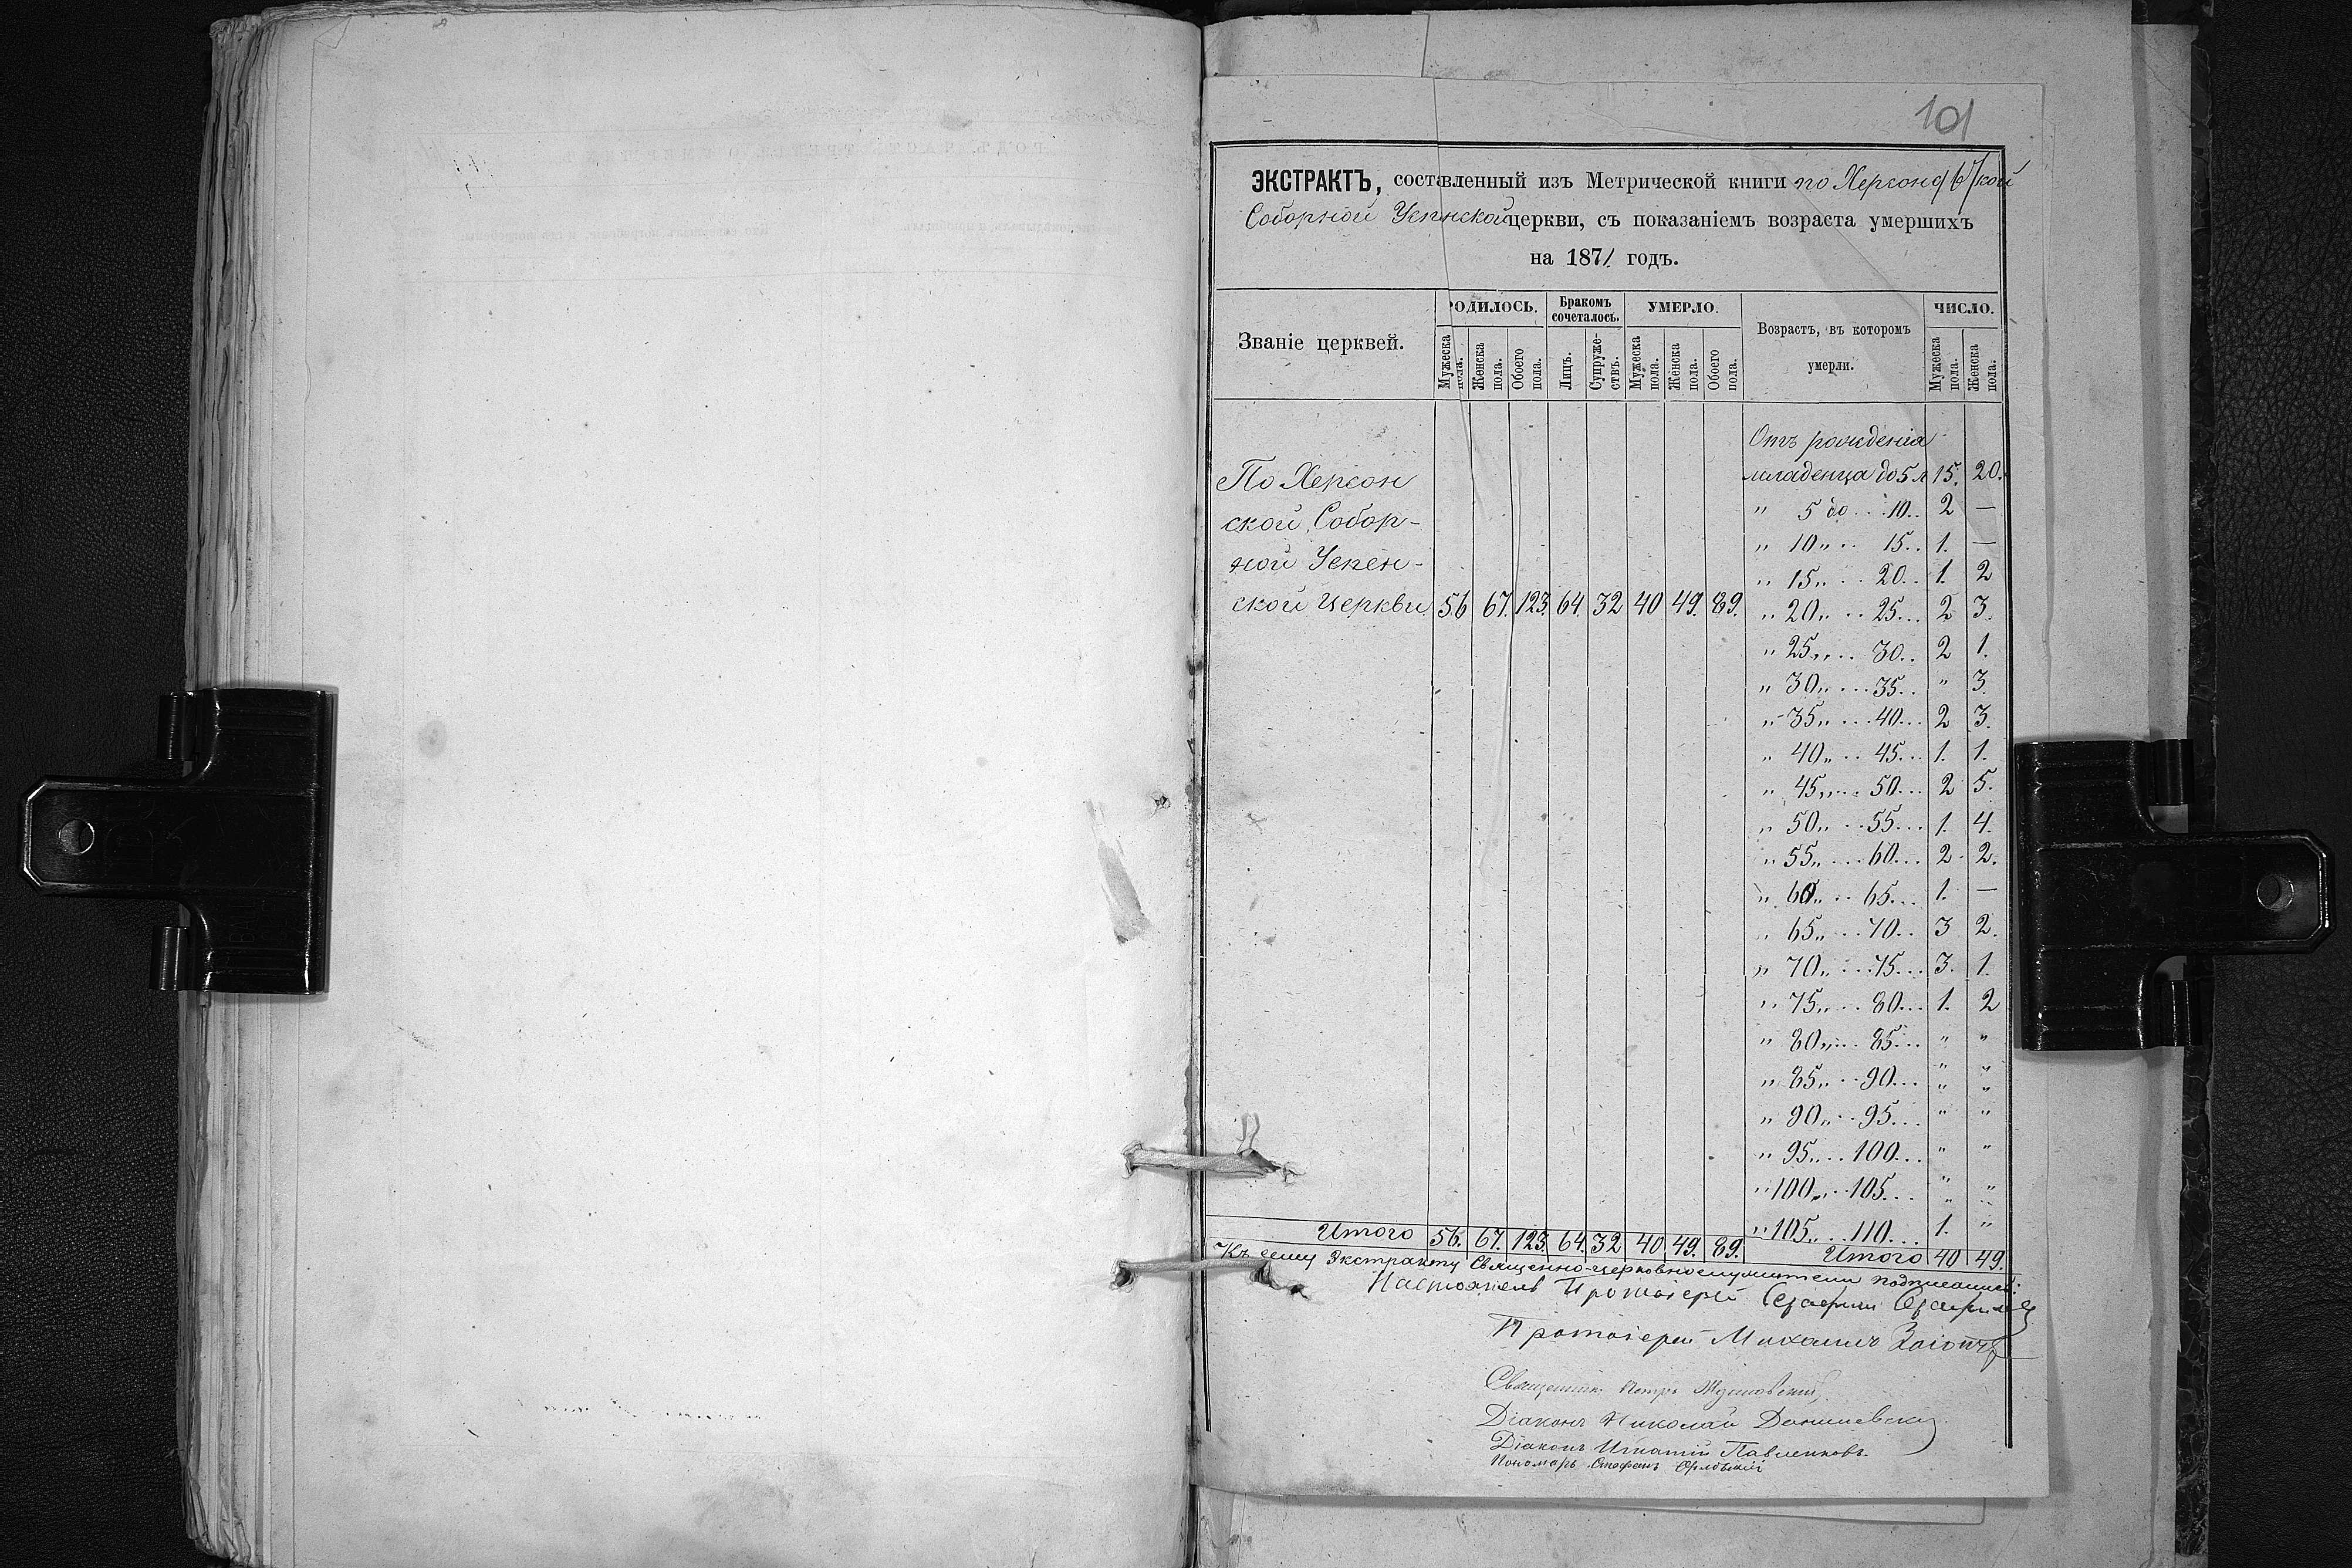 101
ЭКСТРАКТЪ, составленный изъ Метрической книги по Херсонской
Соборной Успнской церкви, съ показаніемъ возраста умершихъ
на 1871 годъ.
Званіе церквей.
РОДИЛОСЬ.
Бракомъ сочеталось.
УМЕРЛО.
Возрастъ, въ которомъ умерли.
ЧИСЛО.
Мужеска пола.
Женска пола.
Обоего пола.
Лицъ.
Супружествъ.
Мужеска пола.
Женска пола.
Обоего пола.
Мужеска пола.
Женска пола.
Отъ рожденія
младенца до 5 л 15. 20.
По Херсон
ской Собор-
ной Успен-
ской Церкви 56 67. 123. 64. 32 40 49. 89.
" 5 до 10.. 2 —
" 10 " 15.. 1. —
" 15 " 20.. 1. 2
" 20 " 25... 2 3.
" 25 " 30.. 2 1.
" 30 " 35.. " 3.
" 35 " 40... 2 3.
" 40 " 45... 1. 1.
" 45 " 50... 2 5.
" 50 " 55... 1. 4.
" 55 " 60... 2 2.
" 60 " 65... 1. —
" 65 " 70.. 3 2.
" 70 " 75... 3. 1.
" 75 " 80... 1. 2
" 80 " 85... " "
" 85 " 90... " "
" 90 " 95... " "
" 95 " 100... " "
" 100 " 105... " "
" 105 " 110... 1. "
Итого 56. 67. 123. 64. 32 40 49. 89. Итого 40 49.
Къ сему Экстракту Священно-церковнослужители подписались:
Настоятель Протоіерей
Протоіерей Михаилъ
Священникъ Петръ
Діаконъ Николай Данилевскій
Діаконъ Игнатій Павленковъ.
Пономарь Стефанъ Орловскій